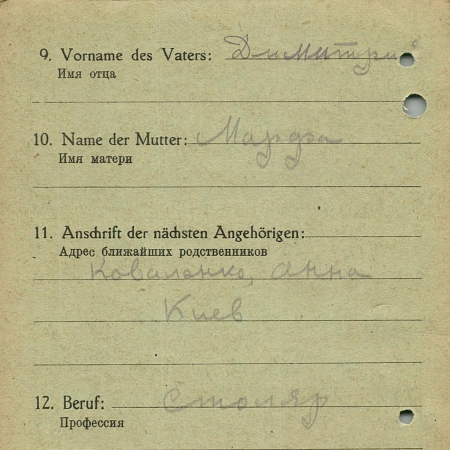 9. Vorname des Vaters: Димитрий
Имя отца
10. Name der Mutter: Марфа
Имя матери
11. Anschrift der nächsten Angehörigen:
Адрес ближайших родственников
Коваланко, Анна
Киев
12. Beruf: Столяр
Профессия